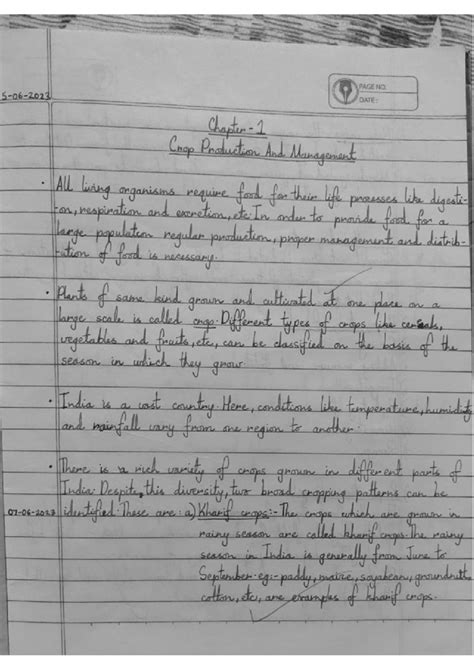 PAGE NO.
DATE:
5-06-2023
Chapter-1
Crop Production And Management
• All living organisms require food for their life processes like digesti-
on, respiration and excretion, etc. In order to provide food for a
large population regular production, proper management and distrib-
ution of food is necessary.
• Plants of same kind grown and cultivated at one place on a
large scale is called crop. Different types of crops like cereals,
vegetables and fruits, etc, can be classified on the basis of the
season in which they grow.
• India is a vast country. Here, conditions like temperature, humidity
and rainfall vary from one region to another.
• There is a rich variety of crops grown in different parts of
India. Despite, this diversity, two broad cropping patterns can be
07-06-2023 identified. These are: a) Kharif crops:- The crops which are grown in
rainy season are called kharif crops. The rainy
season in India is generally from June to
September. eg:- paddy, maize, soyabean, groundnut,
cotton, etc, are examples of kharif crops.